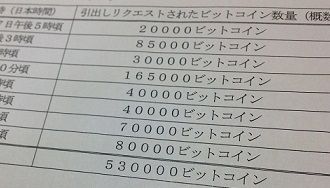 時（日本時間） 引出しリクエストされたビットコイン数量（概数
７日午後５時頃 ２００００ビットコイン
後３時頃 ８５０００ビットコイン
時頃 ３００００ビットコイン
０分頃 １６５０００ビットコイン
時頃 ４００００ビットコイン
時頃 ４００００ビットコイン
頃 ７００００ビットコイン
頃 ８００００ビットコイン
５３００００ビットコイン